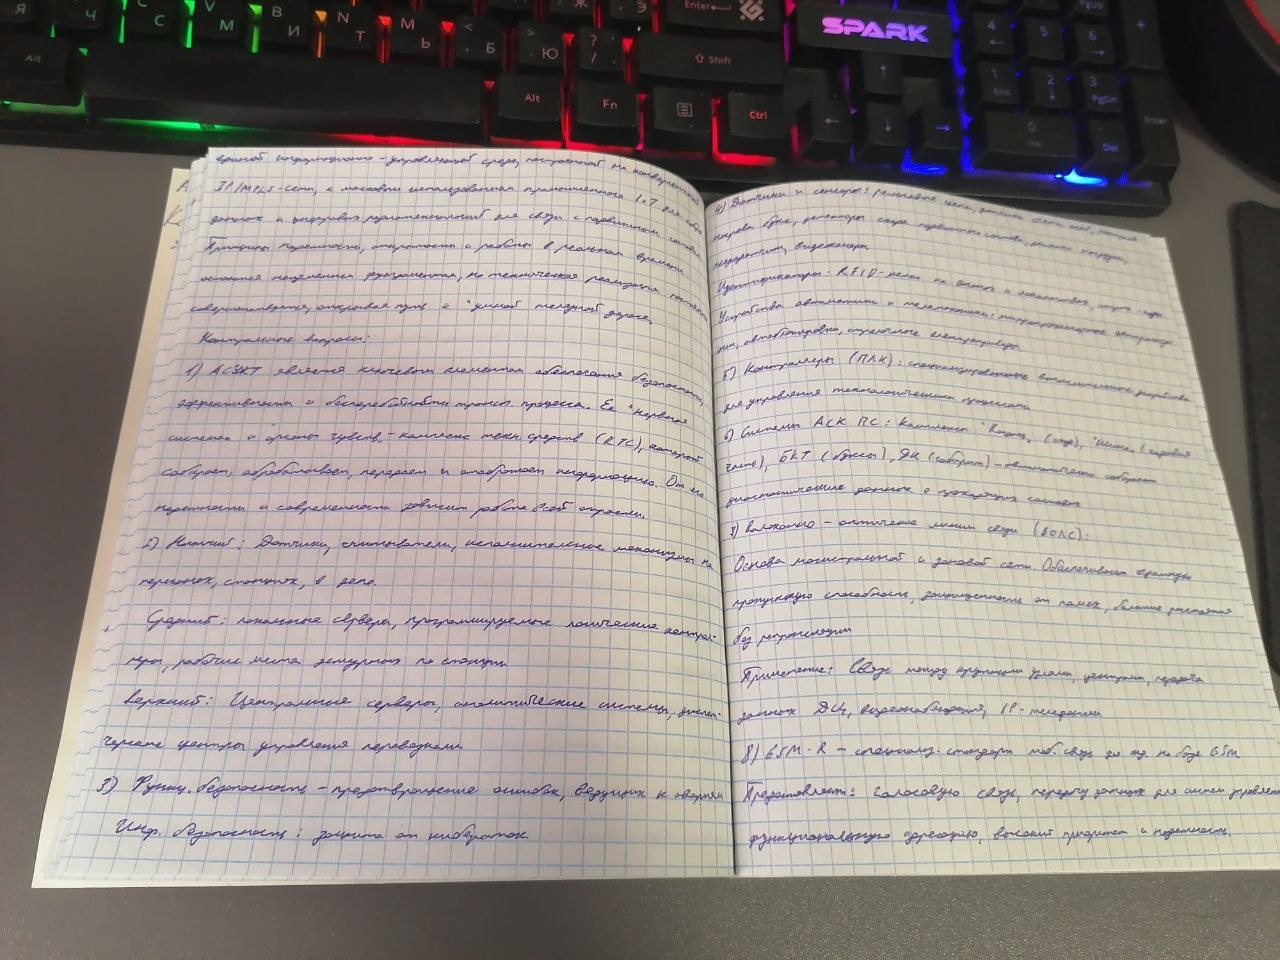 единой информационно-управляющей среде, построенной на конвергентной
IP/MPLS-сети, с массовым использованием промышленного IoT для сбора
данных и цифровых радиотехнологий для связи с подвижным составом
Принципы надежности, открытости и работы в реальном времени
остаются неизменным фундаментом, но техническая реализация постоянно
совершенствуется, открывая путь к "умной железной дороге"
Контрольные вопросы:
1) АСУЖТ является ключевым элементом обеспечения безопасности,
эффективности и бесперебойности трансп. процесса. Ее "нервная
система и органы чувств" - комплекс техн. средств (КТС), который
собирает, обрабатывает, передает и отображает информацию. От его
надежности и современности зависит работа всей отрасли.
2) Нижний: Датчики, считыватели, исполнительные механизмы на
перегонах, станциях, в депо.
Средний: локальные серверы, программируемые логические контрол-
леры, рабочие места дежурных по станции
верхний: Центральные серверы, аналитические системы, диспет-
черские центры управления перевозками
3) Функц. безопасность - предотвращение ошибок, ведущих к авариям
Инф. безопасность: защита от кибератак
4) Датчики и сенсоры: рельсовые цепи, датчики счета осей, контроля
нагрева букс, детекторы схода подвижного состава, датчики погрузки,
видеокамеры
Идентификаторы: RFID-метки на вагонах и локомотивах
Устройства автоматики и телемеханики: микропроцессорные централиза-
ции, автоблокировки, стрелочные электроприводы
5) Контроллеры (ПЛК): специализированные вычислительные устройства
для управления технологическими процессами
6) Системы АСК ПС: Комплексы (ходовая
часть), БКТ (буксы), ДК (габарит) - автоматически собирают
диагностические данные о проходящих составах
7) волоконно - оптические линии связи (ВОЛС):
Основа магистральной и зоновой сети. Обеспечивает огромную
пропускную способность, защищенность от помех, большие расстояния
без регенерации
Применение: Связь между крупными узлами, центрами, передача
данных ДЦ, видеонаблюдения, IP-телефонии
8) GSM-R - специализ. стандарт моб. связи для жд. на базе GSM
Предоставляет: голосовую связь, передачу данных для систем управления
функциональную адресацию, высокий приоритет и надежность.
SPARK
Alt
Alt
Fn
Ctrl
Shift
Enter
End
PgDn
Del